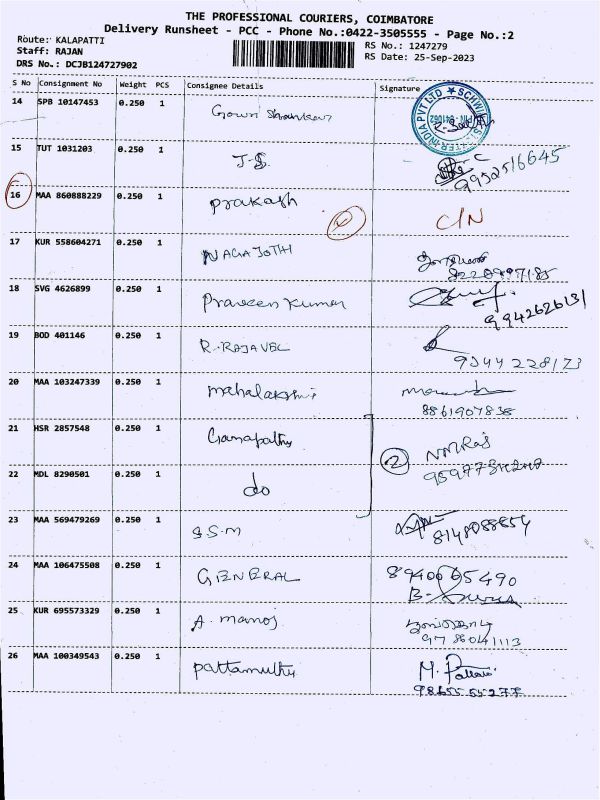 THE PROFESSIONAL COURIERS, COIMBATORE
Delivery Runsheet - PCC - Phone No.:0422-3505555 - Page No.:2
Route: KALAPATTI
Staff: RAJAN
DRS No.: DCJB124727902
RS No.: 1247279
RS Date: 25-Sep-2023
S No Consignment No Weight PCS Consignee Details Signature
14 SPB 10147453 0.250 1 Gowri Shankar
15 TUT 1031203 0.250 1 J.S.
9952516645
16 MAA 860888229 0.250 1 Prakash C/N
17 KUR 558604271 0.250 1 NAGAJOTHI
18 SVG 4626899 0.250 1 Praveen Kumar
9942626131
19 BOD 401146 0.250 1 R.RAJAVEL
9344228173
20 MAA 103247339 0.250 1 mahalakshmi
8861907838
21 HSR 2857548 0.250 1 Ganapathy
2 NMRaj
22 MDL 8290501 0.250 1 do
23 MAA 569479269 0.250 1 S.S.M
8148088854
24 MAA 106475508 0.250 1 GENERAL 8940065490
25 KUR 695573329 0.250 1 A. manoj
9786041113
26 MAA 100349543 0.250 1 Pattamuthu
9865555277